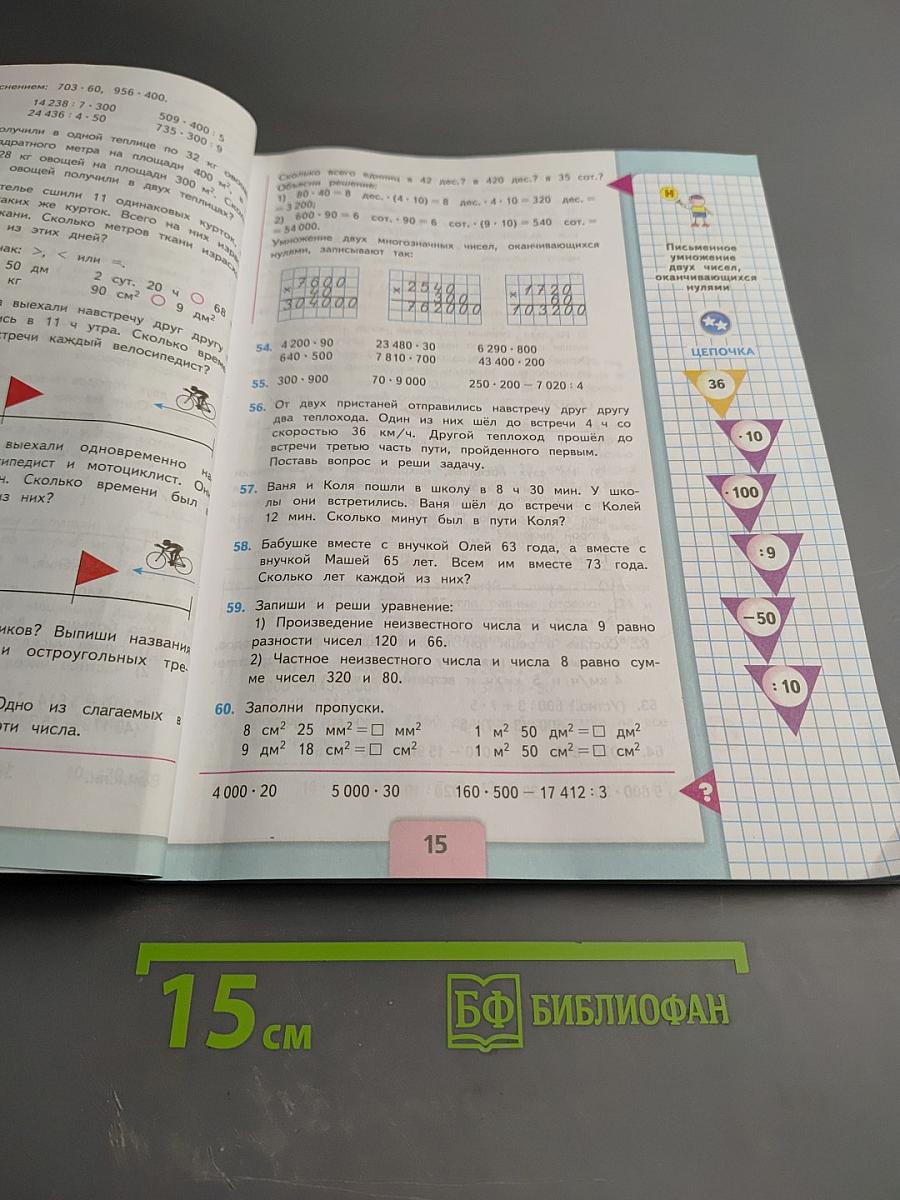 снением: 703 · 60, 956 · 400.
14 238 : 7 · 300
24 436 : 4 · 50
509 · 400 : 5
735 · 300 : 9
олучили в одной теплице по 32 кг
адратного метра на площади 400 м².
28 кг овощей на площади 300 м².
овощей получили в двух теплицах?
телье сшили 11 одинаковых курток,
таких же курток. Всего на них
кани. Сколько метров ткани
из этих дней?
нак: >, < или =.
50 дм
2 сут. 20 ч 68
кг
90 см² 9 дм²
выехали навстречу друг другу
ись в 11 ч утра. Сколько
стречи каждый велосипедист?
выехали одновременно
сипедист и мотоциклист.
н. Сколько времени был
из них?
иков? Выпиши названия
и остроугольных тре-
Одно из слагаемых в
эти числа.
Сколько всего единиц в 42 дес.? в 420 дес.? в 35 сот.?
Объясни решение:
1) 80 · 40 = 8 дес. · (4 · 10) = 8 дес. · 4 · 10 = 320 дес. =
= 3 200;
2) 600 · 90 = 6 сот. · 90 = 6 сот. · (9 · 10) = 540 сот. =
= 54 000.
Умножение двух многозначных чисел, оканчивающихся
нулями, записывают так:
× 7600
40
304000
× 2540
300
762000
× 1720
60
103200
54. 4 200 · 90 23 480 · 30 6 290 · 800
640 · 500 7 810 · 700 43 400 · 200
55. 300 · 900 70 · 9 000 250 · 200 − 7 020 : 4
56. От двух пристаней отправились навстречу друг другу
два теплохода. Один из них шёл до встречи 4 ч со
скоростью 36 км/ч. Другой теплоход прошёл до
встречи третью часть пути, пройденного первым.
Поставь вопрос и реши задачу.
57. Ваня и Коля пошли в школу в 8 ч 30 мин. У шко-
лы они встретились. Ваня шёл до встречи с Колей
12 мин. Сколько минут был в пути Коля?
58. Бабушке вместе с внучкой Олей 63 года, а вместе с
внучкой Машей 65 лет. Всем им вместе 73 года.
Сколько лет каждой из них?
59. Запиши и реши уравнение:
1) Произведение неизвестного числа и числа 9 равно
разности чисел 120 и 66.
2) Частное неизвестного числа и числа 8 равно сум-
ме чисел 320 и 80.
60. Заполни пропуски.
8 см² 25 мм² = □ мм² 1 м² 50 дм² = □ дм²
9 дм² 18 см² = □ см² 1 м² 50 см² = □ см²
4 000 · 20 5 000 · 30 160 · 500 − 17 412 : 3
?
15
Н
Письменное
умножение
двух чисел,
оканчивающихся
нулями
ЦЕПОЧКА
36
· 10
· 100
: 9
− 50
: 10
15 см
БФ БИБЛИОФАН